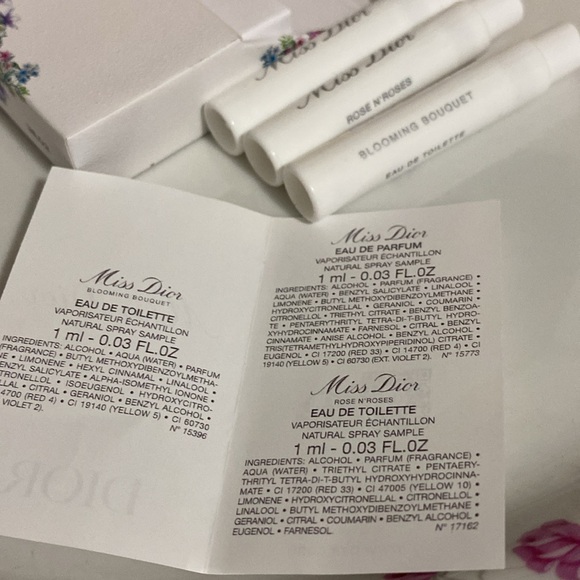 Miss Dior
Miss Dior
ROSE N'ROSES
BLOOMING BOUQUET
EAU DE TOILETTE
Miss Dior
BLOOMING BOUQUET
EAU DE TOILETTE
VAPORISATEUR ÉCHANTILLON
NATURAL SPRAY SAMPLE
1 ml - 0.03 FL.OZ
INGREDIENTS: ALCOHOL • AQUA (WATER) • PARFUM
(FRAGRANCE) • BUTYL METHOXYDIBENZOYLMETHA-
NE • LIMONENE • HEXYL CINNAMAL • LINALOOL •
BENZYL SALICYLATE • ALPHA-ISOMETHYL IONONE •
CITRONELLOL • ISOEUGENOL • HYDROXYCITRO-
• CITRAL • GERANIOL • BENZYL ALCOHOL •
4700 (RED 4) • CI 19140 (YELLOW 5) • CI 60730
VIOLET 2).
N° 15396
Miss Dior
EAU DE PARFUM
VAPORISATEUR ÉCHANTILLON
NATURAL SPRAY SAMPLE
1 ml - 0.03 FL.OZ
INGREDIENTS: ALCOHOL • PARFUM (FRAGRANCE) •
AQUA (WATER) • BENZYL SALICYLATE • LINALOOL •
LIMONENE • BUTYL METHOXYDIBENZOYLMETHANE •
HYDROXYCITRONELLAL • GERANIOL • COUMARIN •
CITRONELLOL • TRIETHYL CITRATE • BENZYL BENZOA-
TE • PENTAERYTHRITYL TETRA-DI-T-BUTYL HYDRO-
XYHYDROCINNAMATE • FARNESOL • CITRAL • BENZYL
CINNAMATE • ANISE ALCOHOL • BENZYL ALCOHOL •
TRIS(TETRAMETHYLHYDROXYPIPERIDINOL) CITRATE •
EUGENOL • CI 17200 (RED 33) • CI 14700 (RED 4) • CI
19140 (YELLOW 5) • CI 60730 (EXT. VIOLET 2). N° 15773
Miss Dior
ROSE N'ROSES
EAU DE TOILETTE
VAPORISATEUR ÉCHANTILLON
NATURAL SPRAY SAMPLE
1 ml - 0.03 FL.OZ
INGREDIENTS: ALCOHOL • PARFUM (FRAGRANCE) •
AQUA (WATER) • TRIETHYL CITRATE • PENTAERY-
THRITYL TETRA-DI-T-BUTYL HYDROXYHYDROCINNA-
MATE • CI 17200 (RED 33) • CI 47005 (YELLOW 10) •
LIMONENE • HYDROXYCITRONELLAL • CITRONELLOL •
LINALOOL • BUTYL METHOXYDIBENZOYLMETHANE •
GERANIOL • CITRAL • COUMARIN • BENZYL ALCOHOL •
EUGENOL • FARNESOL.
N° 17162